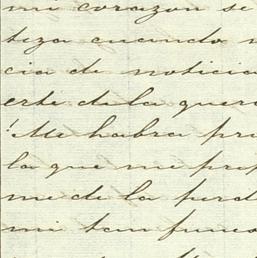 mi corazon se
tiza cuando
cia de noticia
erte de la quer
! Me habra pri
la que me prep
me de la perd
mi tan funes